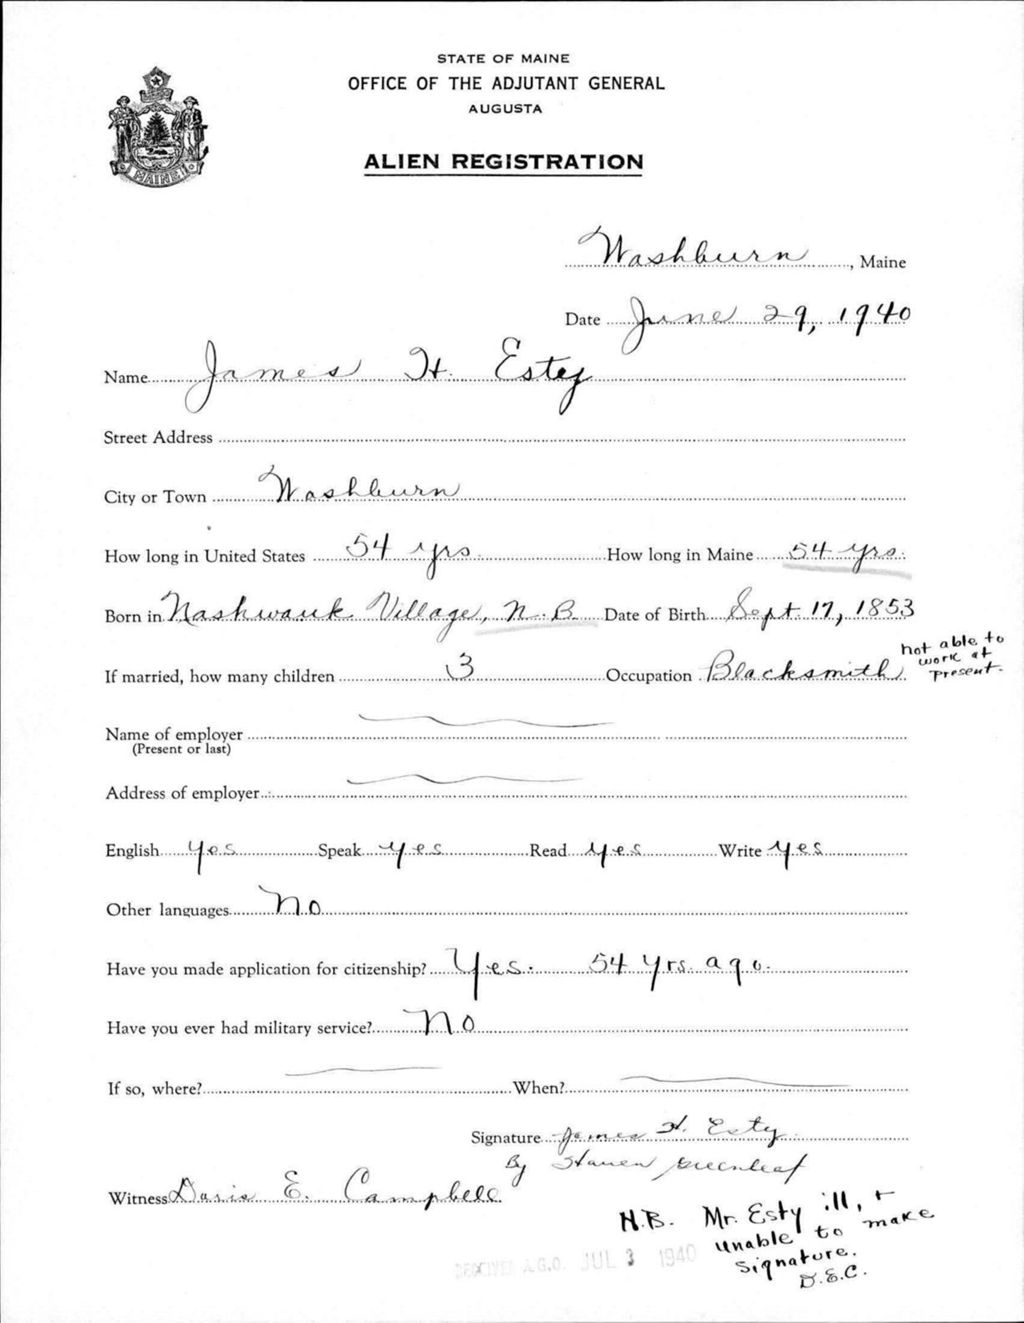 STATE OF MAINE
OFFICE OF THE ADJUTANT GENERAL
AUGUSTA
ALIEN REGISTRATION
MAINE
Washburn, Maine
Date June 29, 1940
Name James H. Estey
Street Address
City or Town Washburn
How long in United States 54 yrs. How long in Maine 54 yrs.
Born in Nashwauk Village, N.B. Date of Birth Sept. 17, 1853
If married, how many children 3 Occupation Blacksmith not able to work at present.
Name of employer
(Present or last)
Address of employer
English yes Speak yes Read yes Write yes
Other languages No
Have you made application for citizenship? Yes. 54 yrs. ago.
Have you ever had military service? No
If so, where? When?
Signature James H. Esty
By Greenleaf
Witness E. Campbell
N.B. Mr. Esty ill, + unable to make signature. D.E.C.
RECEIVED A.G.O. JUL 3 1940